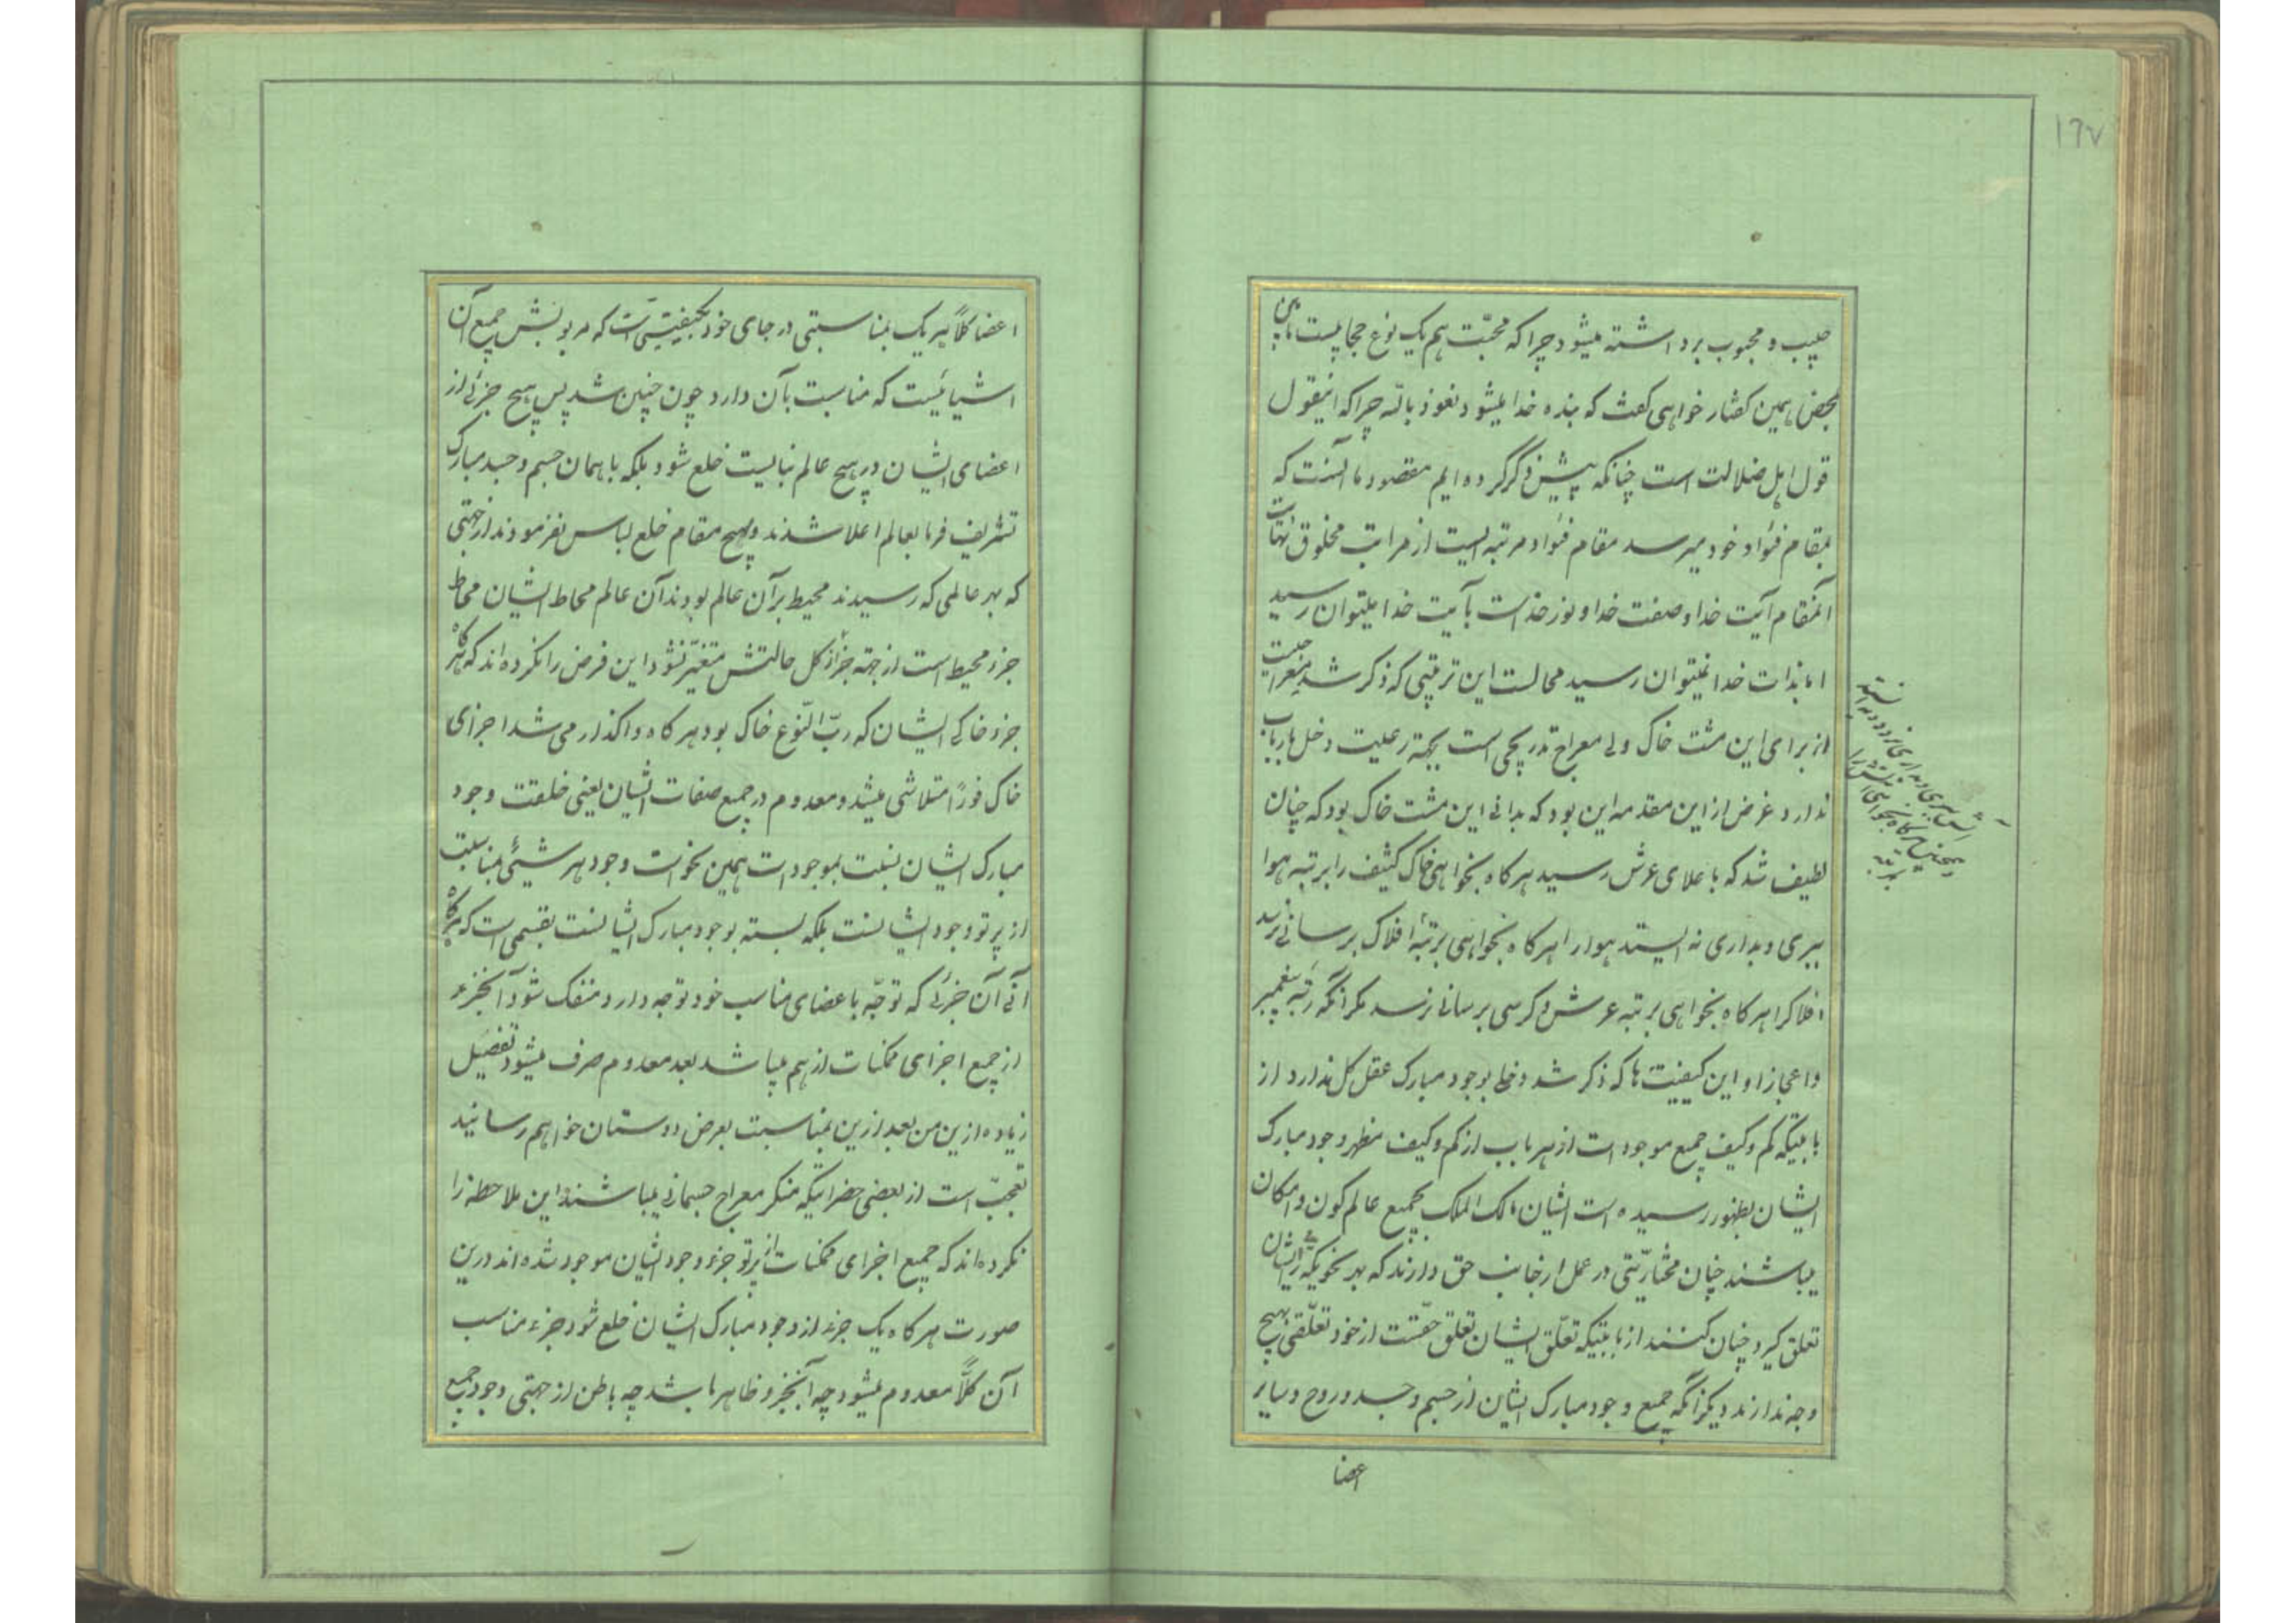 ۱۶۷
حبیب و محبوب برداشته میشود چراکه محبّت هم یک نوع حجابیست مابین
بمحض همین گفتار خواهی گفت که بنده خدا میشود نعوذ بالله چراکه اینقول
قول اهل ضلالت است چنانکه پیش ذکر کرده ایم مقصود ما آنست که
بمقام فؤاد خود میرسد مقام فؤاد مرتبه ایست از مراتب مخلوق نهایت
آنمقام آیت خدا و صفت خدا و نور خداست بآیت خدا میتوان رسید
اما بذات خدا نمیتوان رسید محالست این ترتیبی که ذکر شد معراجیست
از برای این مشت خاک ولی معراج تدریجی است بجهة رعیت دخل بارباب
ندارد غرض از این مقدمه این بود که بدانی این مشت خاک بود که چنان
لطیف شد که باعلای عرش رسید هرگاه بخواهی خاک کثیف را برتبه هوا
ببری و بداری نه ایستد هوا را هرگاه بخواهی برتبهٔ افلاک برسانی نرسد
افلاکرا هرگاه بخواهی برتبه عرش و کرسی برسانی نرسد مگر آنکه رتبه پیغمبر
و اعجاز او این کیفیت ها که ذکر شد دخلی بوجود مبارک عقل کل ندارد از
بابتیکه کم و کیف جمیع موجودات از هر باب از کم و کیف مظهر وجود مبارک
ایشان بظهور رسیده است ایشان مالک الملک بجمیع عالم کون و امکان
میباشند چنان مختاریّتی در عمل از جانب حق دارند که بهر نحویکه رأی ایشان
تعلق گیرد چنان کنند از بابتیکه تعلّق ایشان تعلق حقّست از خود تعلّقی بهیچ
وجه ندارند دیگر آنکه جمیع وجود مبارک ایشان از جسم و جسد و روح و سایر
اعضا
اعضا کلاً هریک بمناسبتی در جای خود بکیفیّتیست که مربوبش جمیع آن
اشیائیست که مناسبت بآن دارد چون چنین شد پس هیچ جزئی از
اعضای ایشان در هیچ عالم نبایست خلع شود بلکه با همان جسم و جسد مبارک
تشریف فرما بعالم اعلا شدند و بهیچ مقام خلع لباس نفرمودند از جهتی
که بهر عالمی که رسیدند محیط بر آن عالم بودند آن عالم محاط ایشان محاط
جزء محیط است از جهة جزء از کل حالتش متغیّر نشود این فرض را نکرده اند که هرگاه
جزء خاکی ایشان که ربّ النّوع خاک بود هرگاه واگذار می شد اجزای
خاک فوراً متلاشی میشد و معدوم در جمیع صفات ایشان یعنی خلقت وجود
مبارک ایشان نسبت بموجودات همین نحو است وجود هر شیئی بمناسبت
از پرتو وجود ایشانست بلکه بسته بوجود مبارک ایشانست بقسمی است که هرگاه
آنی آن جزئی که توجّه باعضای مناسب خود توجه دارد منفک شود آنجزء
از جمیع اجزای ممکنات از هم میپاشد بعد معدوم صرف میشود تفصیل
زیاده ازین من بعد ازین بمناسبت بعرض دوستان خواهم رسانید
تعجّب است از بعضی حضراتیکه منکر معراج جسمانی میباشند این ملاحظه را
نکرده اند که جمیع اجزای ممکنات از پرتو جزء وجود ایشان موجود شده اند درین
صورت هرگاه یک جزء از وجود مبارک ایشان خلع شود جزء مناسب
آن کلاً معدوم میشود چه آنجزء ظاهر باشد چه باطن از جهتی وجود جمیع